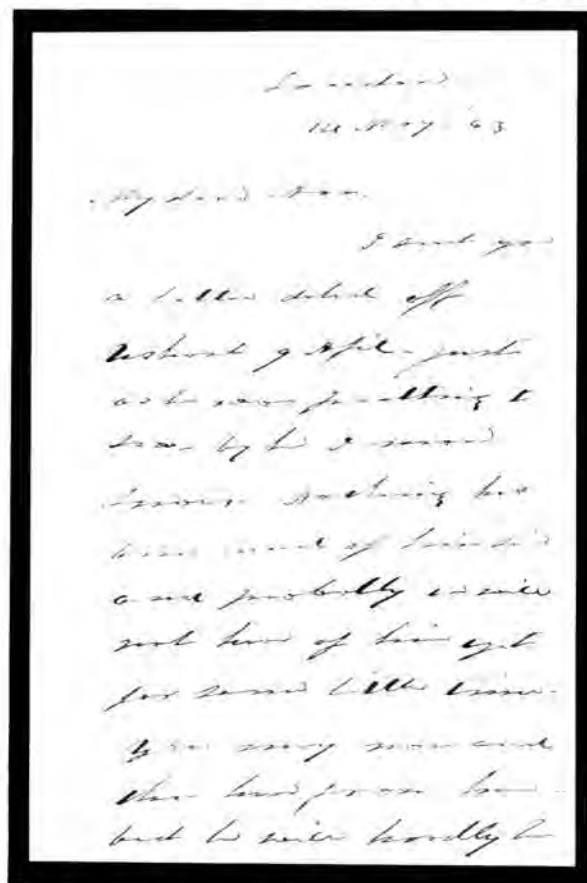 London
14 May 63
My dear
I sent you
a letter dated off
Ushant 9 April just
as he was putting to
sea
since nothing has
been heard of
and probably we will
not hear of him yet
for some little time.
You may now and
then hear from him
but he will hardly be